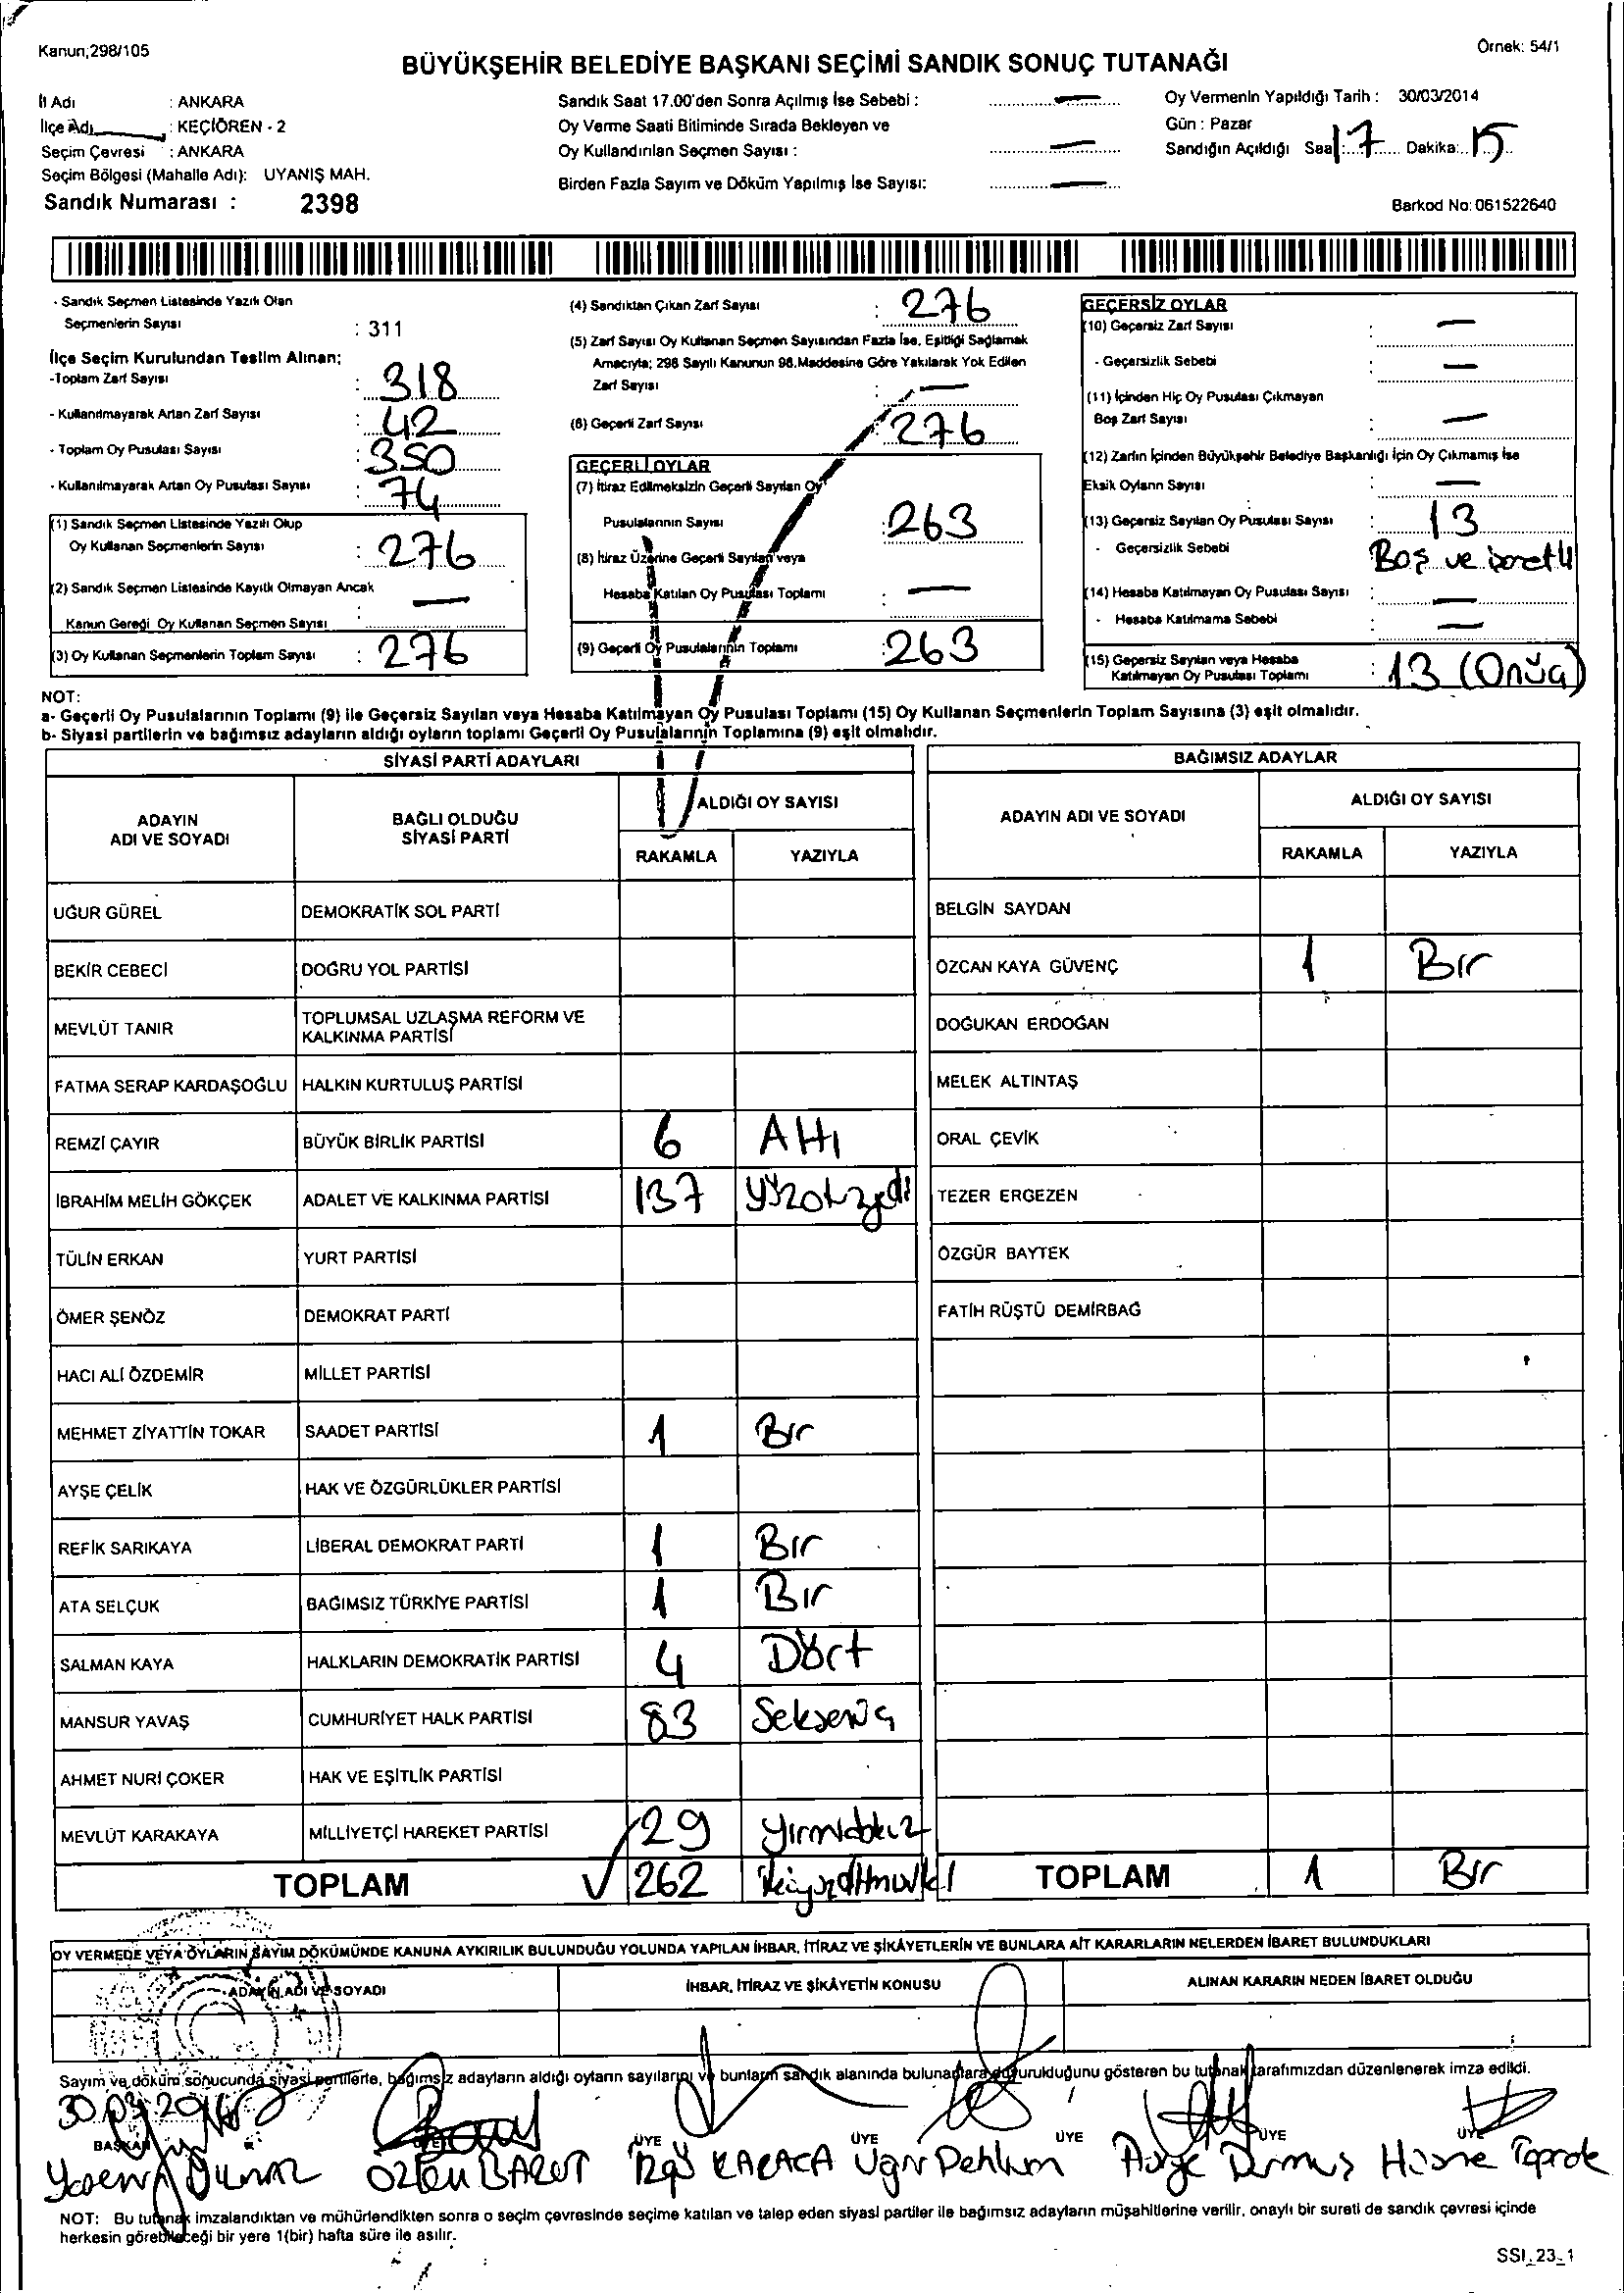 Kanun;298/105
Örnek: 54/1
BÜYÜKŞEHİR BELEDİYE BAŞKANI SEÇİMİ SANDIK SONUÇ TUTANAĞI
İl Adı : ANKARA
İlçe Adı : KEÇİÖREN - 2
Seçim Çevresi : ANKARA
Seçim Bölgesi (Mahalle Adı): UYANIŞ MAH.
Sandık Numarası : 2398
Sandık Saat 17.00'den Sonra Açılmış İse Sebebi : —
Oy Verme Saati Bitiminde Sırada Bekleyen ve
Oy Kullandırılan Seçmen Sayısı : —
Birden Fazla Sayım ve Döküm Yapılmış İse Sayısı: —
Oy Vermenin Yapıldığı Tarih : 30/03/2014
Gün : Pazar
Sandığın Açıldığı Saat: 17 Dakika: 15
Barkod No: 061522640
- Sandık Seçmen Listesinde Yazılı Olan
Seçmenlerin Sayısı : 311
İlçe Seçim Kurulundan Teslim Alınan;
-Toplam Zarf Sayısı : 318
- Kullanılmayarak Artan Zarf Sayısı : 42
- Toplam Oy Pusulası Sayısı : 350
- Kullanılmayarak Artan Oy Pusulası Sayısı : 74
(1) Sandık Seçmen Listesinde Yazılı Olup
Oy Kullanan Seçmenlerin Sayısı : 276
(2) Sandık Seçmen Listesinde Kayıtlı Olmayan Ancak
Kanun Gereği Oy Kullanan Seçmen Sayısı : —
(3) Oy Kullanan Seçmenlerin Toplam Sayısı : 276
(4) Sandıktan Çıkan Zarf Sayısı : 276
(5) Zarf Sayısı Oy Kullanan Seçmen Sayısından Fazla İse, Eşitliği Sağlamak
Amacıyla; 298 Sayılı Kanunun 98.Maddesine Göre Yakılarak Yok Edilen
Zarf Sayısı : —
(6) Geçerli Zarf Sayısı : 276
GEÇERLİ OYLAR
(7) İtiraz Edilmeksizin Geçerli Sayılan Oy
Pusulalarının Sayısı : 263
(8) İtiraz Üzerine Geçerli Sayılan veya
Hesaba Katılan Oy Pusulası Toplamı : —
(9) Geçerli Oy Pusulalarının Toplamı : 263
GEÇERSİZ OYLAR
(10) Geçersiz Zarf Sayısı : —
- Geçersizlik Sebebi : —
(11) İçinden Hiç Oy Pusulası Çıkmayan
Boş Zarf Sayısı : —
(12) Zarfın İçinden Büyükşehir Belediye Başkanlığı İçin Oy Çıkmamış İse
Eksik Oyların Sayısı : —
(13) Geçersiz Sayılan Oy Pusulası Sayısı : 13
- Geçersizlik Sebebi : Boş ve işaretli
(14) Hesaba Katılmayan Oy Pusulası Sayısı : —
- Hesaba Katılmama Sebebi : —
(15) Geçersiz Sayılan veya Hesaba
Katılmayan Oy Pusulası Toplamı : 13 (Onüç)
NOT:
a- Geçerli Oy Pusulalarının Toplamı (9) ile Geçersiz Sayılan veya Hesaba Katılmayan Oy Pusulası Toplamı (15) Oy Kullanan Seçmenlerin Toplam Sayısına (3) eşit olmalıdır.
b- Siyasi partilerin ve bağımsız adayların aldığı oyların toplamı Geçerli Oy Pusulalarının Toplamına (9) eşit olmalıdır.
SİYASİ PARTİ ADAYLARI
ADAYIN ADI VE SOYADI BAĞLI OLDUĞU SİYASİ PARTİ ALDIĞI OY SAYISI
RAKAMLA YAZIYLA
UĞUR GÜREL DEMOKRATİK SOL PARTİ
BEKİR CEBECİ DOĞRU YOL PARTİSİ
MEVLÜT TANIR TOPLUMSAL UZLAŞMA REFORM VE KALKINMA PARTİSİ
FATMA SERAP KARDAŞOĞLU HALKIN KURTULUŞ PARTİSİ
REMZİ ÇAYIR BÜYÜK BİRLİK PARTİSİ 6 Altı
İBRAHİM MELİH GÖKÇEK ADALET VE KALKINMA PARTİSİ 137 yüzotzyedi
TÜLİN ERKAN YURT PARTİSİ
ÖMER ŞENÖZ DEMOKRAT PARTİ
HACI ALİ ÖZDEMİR MİLLET PARTİSİ
MEHMET ZİYATTİN TOKAR SAADET PARTİSİ 1 Bir
AYŞE ÇELİK HAK VE ÖZGÜRLÜKLER PARTİSİ
REFİK SARIKAYA LİBERAL DEMOKRAT PARTİ 1 Bir
ATA SELÇUK BAĞIMSIZ TÜRKİYE PARTİSİ 1 Bir
SALMAN KAYA HALKLARIN DEMOKRATİK PARTİSİ 4 Dört
MANSUR YAVAŞ CUMHURİYET HALK PARTİSİ 83 Seksenüç
AHMET NURİ ÇOKER HAK VE EŞİTLİK PARTİSİ
MEVLÜT KARAKAYA MİLLİYETÇİ HAREKET PARTİSİ 29 yirmidokuz
TOPLAM 262 ikiyüzaltmışiki
BAĞIMSIZ ADAYLAR
ADAYIN ADI VE SOYADI ALDIĞI OY SAYISI
RAKAMLA YAZIYLA
BELGİN SAYDAN
ÖZCAN KAYA GÜVENÇ 1 Bir
DOĞUKAN ERDOĞAN
MELEK ALTINTAŞ
ORAL ÇEVİK
TEZER ERGEZEN
ÖZGÜR BAYTEK
FATİH RÜŞTÜ DEMİRBAĞ
TOPLAM 1 Bir
OY VERMEDE VEYA OYLARIN SAYIM DÖKÜMÜNDE KANUNA AYKIRILIK BULUNDUĞU YOLUNDA YAPILAN İHBAR, İTİRAZ VE ŞİKÂYETLERİN VE BUNLARA AİT KARARLARIN NELERDEN İBARET BULUNDUKLARI
ADAYIN ADI VE SOYADI İHBAR, İTİRAZ VE ŞİKÂYETİN KONUSU ALINAN KARARIN NEDEN İBARET OLDUĞU
Sayım ve döküm sonucunda siyasi partilerle, bağımsız adayların aldığı oyların sayılarını ve bunların sandık alanında bulunanlara duyurulduğunu gösteren bu tutanak tarafımızdan düzenlenerek imza edildi.
30.03.2014
BAŞKAN ÜYE ÜYE ÜYE ÜYE ÜYE
YILMAZ KARACA Uğur Pehlivan Durmuş Hüsne Toprak
NOT: Bu tutanak imzalandıktan ve mühürlendikten sonra o seçim çevresinde seçime katılan ve talep eden siyasi partiler ile bağımsız adayların müşahitlerine verilir, onaylı bir sureti de sandık çevresi içinde
herkesin görebileceği bir yere 1(bir) hafta süre ile asılır.
SSI_23_1